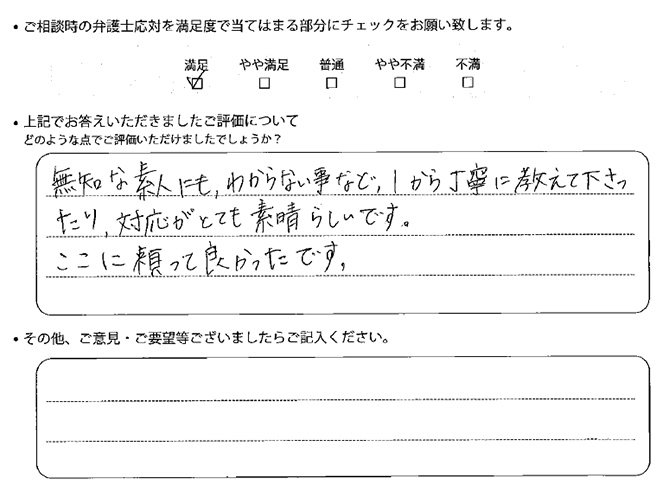 ・ご相談時の弁護士応対を満足度で当てはまる部分にチェックをお願い致します。
満足 やや満足 普通 やや不満 不満
☑ □ □ □ □
・上記でお答えいただきましたご評価について
どのような点でご評価いただけましたでしょうか?
無知な素人にも,わからない事など,1から丁寧に教えて下さっ
たり,対応がとても素晴らしいです。
ここに頼って良かったです,
・その他、ご意見・ご要望等ございましたらご記入ください。